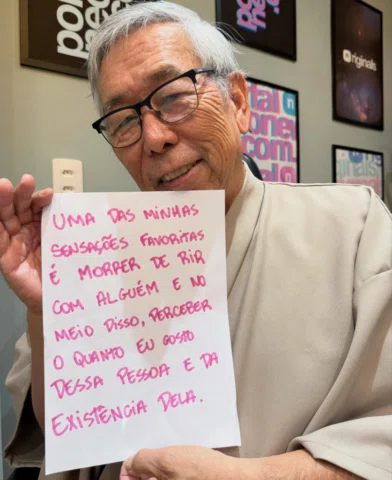 UMA DAS MINHAS
SENSAÇÕES FAVORITAS
É MORRER DE RIR
COM ALGUÉM E NO
MEIO DISSO, PERCEBER
O QUANTO EU GOSTO
DESSA PESSOA E DA
EXISTÊNCIA DELA.
riginals